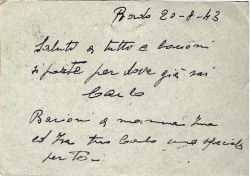 Bordo 20-8-43
Saluto a tutto e bacioni
si parte per dove già sai
Carlo
Bacioni a mamma Ina
ed tuo Carlo una speciale
per te